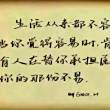 生活从来都不容
当你觉得容易时,肯
有人在替你承担属
你的那份不易.